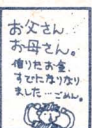 お父さん
お母さん。
借りたお金、
すでになくなり
ました…ごめん。